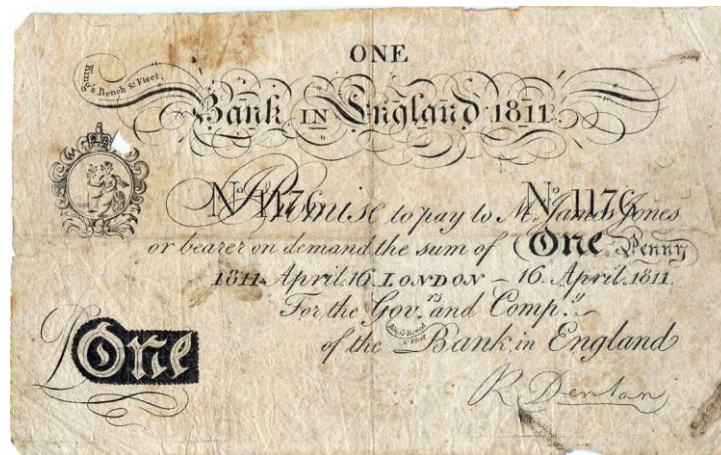 ONE
King's Bench & Fleet,
Bank IN England 1811.
No. 1176 No. 1176
Promise to pay to Mr. James Jones
or bearer on demand the sum of One Penny
1811. April. 16. LONDON – 16. April. 1811.
For the Gov.rs and Comp.y
of the Bank in England
One
R Denton